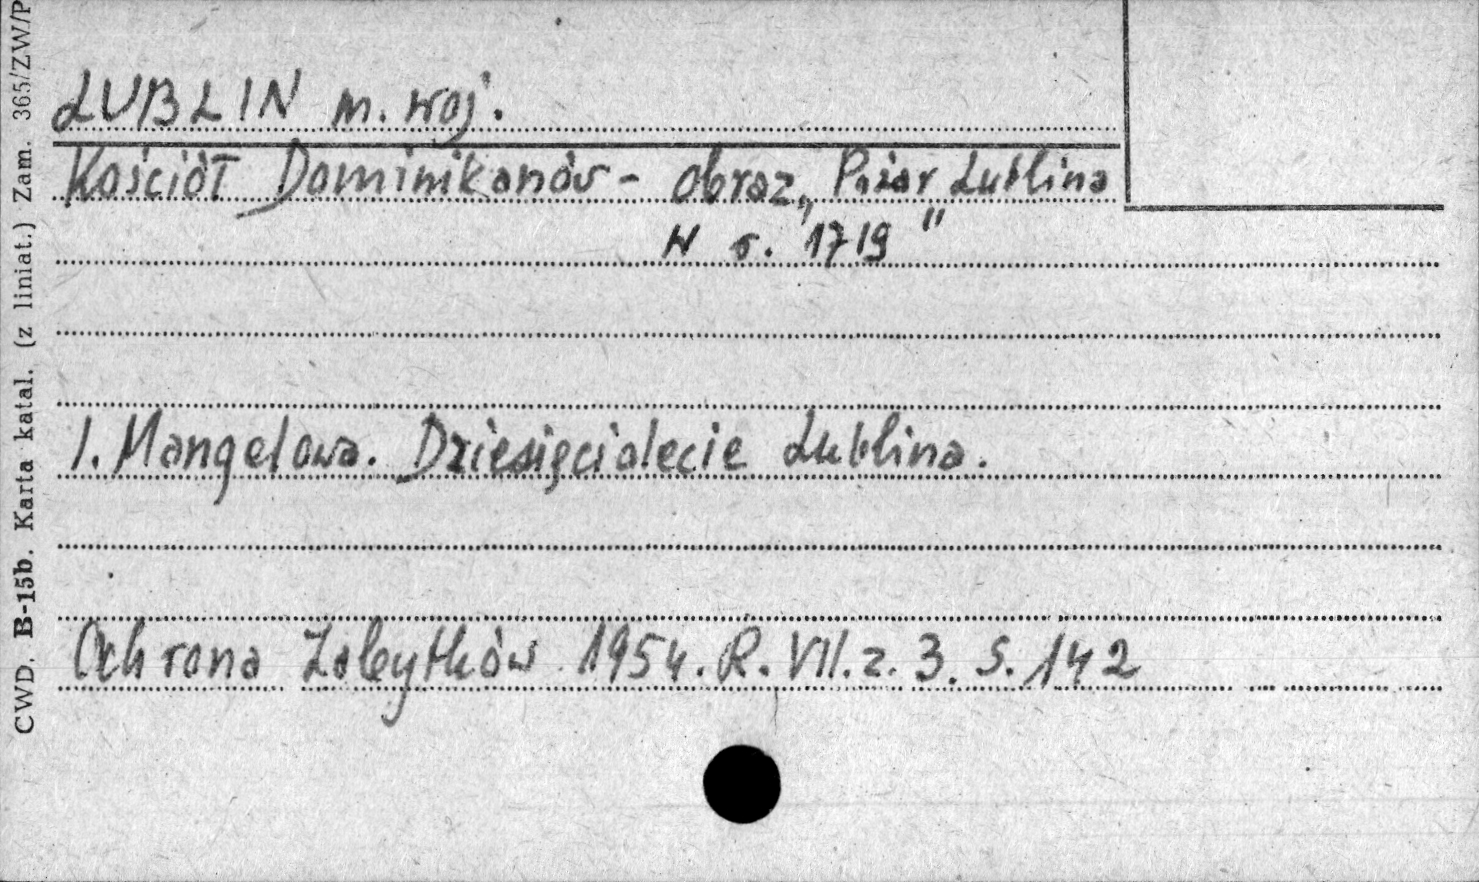 LUBLIN m. woj.
Kościół Dominikanów - obraz „Pożar Lublina
w r. 1719"
I. Mangelowa. Dziesięciolecie Lublina.
Ochrona Zabytków 1954. R. VII. z. 3. s. 142
CWD. B-15b. Karta katal. (z liniat.) Zam. 365/ZW/P